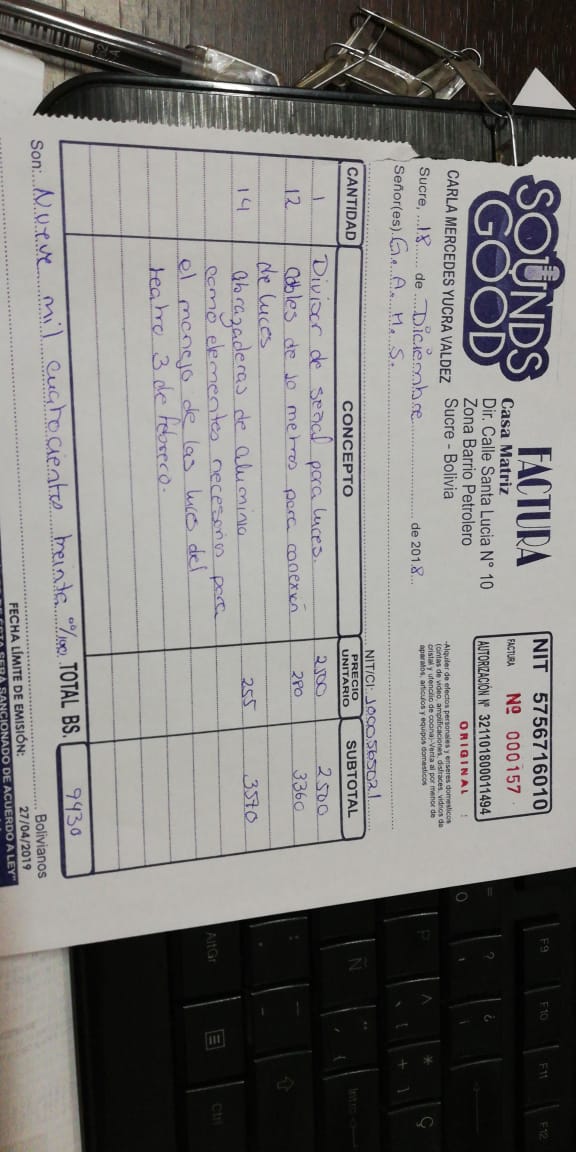 SOUNDS
GOOD
FACTURA
Casa Matriz
Dir. Calle Santa Lucia N° 10
Zona Barrio Petrolero
Sucre - Bolivia
NIT 5756716010
FACTURA Nº 000157
AUTORIZACIÓN Nº 321101800011494
ORIGINAL
CARLA MERCEDES YUCRA VALDEZ
-Alquiler de efectos personales y enseres domesticos
(cintas de video, amplificaciones, disfraces, vidrios de
cristal y utencilio de cocina)-Venta al por menor de
aparatos, articulos y equipos domesticos
Sucre, 18 de Diciembre de 2018
Señor(es) G. A. M. S. NIT/CI: 1000565021
CANTIDAD CONCEPTO PRECIO UNITARIO SUBTOTAL
1 Divisor de señal para luces. 2500 2500
12 Cables de 10 metros para conexión 280 3360
de luces
14 abrazaderas de aluminio 255 3570
como elementos necesarios para
el manejo de las luces del
teatro 3 de febrero.
TOTAL BS. 9430
Son: Nueve mil cuatrocientos treinta 00/100 Bolivianos
FECHA LÍMITE DE EMISIÓN: 27/04/2019
SERÁ SANCIONADO DE ACUERDO A LEY"
F9
F10
F11
F12
=
0
?
¿
¡
P
^
[
*
+
]
Ç
Ñ
¨
{
Intro
:
.
_
-
AltGr
Ctrl